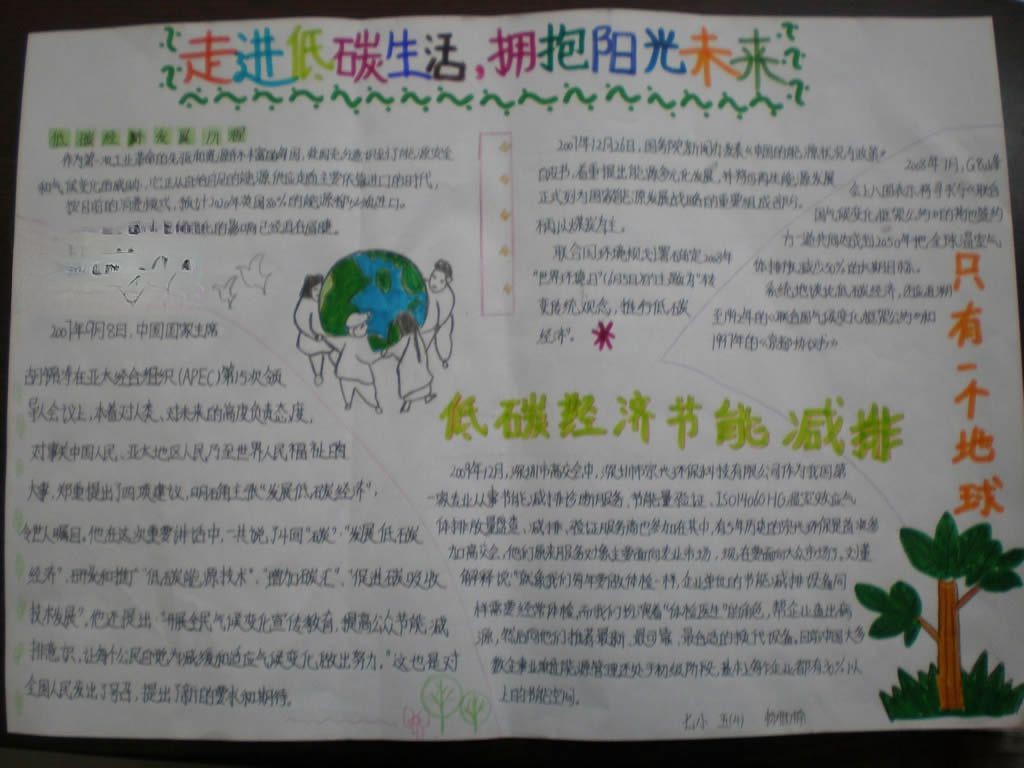 走进低碳生活,拥抱阳光未来
低碳经济发展历程
作为第一次工业革命的先驱和资源并不丰富的岛国,英国充分意识到了能源安全
和气候变化的威胁,它正从自给自足的能源供应走向主要依靠进口的时代,
按目前的消费模式,预计2020年英国80%的能源都必须进口。
的影响已经迫在眉睫。
2007年9月8日,中国国家主席
在亚太经合组织(APEC)第15次领
导人会议上,本着对人类、对未来的高度负责态度,
对事关中国人民、亚太地区人民乃至世界人民福祉的
大事,郑重提出了四项建议,明确主张"发展低碳经济",
令世人瞩目。他在这次重要讲话中,一共说了4回"碳":"发展低碳
经济"、研发和推广"低碳能源技术"、"增加碳汇"、"促进碳吸收
技术发展"。他还提出:"开展全民气候变化宣传教育,提高公众节能减
排意识,让每个公民自觉为减缓和适应气候变化做出努力。"这也是对
全国人民发出了号召,提出了新的要求和期待。
2007年12月26日,国务院新闻办发表《中国的能源状况与政策》
白皮书,着重提出能源多元化发展,并将可再生能源发展
正式列为国家能源发展战略的重要组成部分,
不再以煤炭为主。
联合国环境规划署确定2008年
"世界环境日"(6月5日)的主题为"转
变传统观念,推行低碳
经济"。
2008年7月,G8峰
会上八国表示将寻求与《联合
国气候变化框架公约》的其他签约
方一道共同达成到2050年把全球温室气
体排放减少50%的长期目标。
系统地谈论低碳经济,还应追溯
至1992年的《联合国气候变化框架公约》和
1997年的《京都协议书》
只有一个地球
低碳经济节能减排
2009年12月,深圳市高交会中,深圳市宗兴环保科技有限公司作为我国第
一家专业从事节能减排诊断服务、节能量验证、ISO14060HG温室效应气
体排放量盘查、减排、验证服务商也参加在其中,有5年历史的宗兴环保是首次参
加高交会,他们原来服务对象主要面向专业市场,现在要面向大众市场了,刘董
解释说"就像我们每年要做体检一样,企业单位的节能减排设备同
样需要经常体检,而我们扮演着"体检医生"的角色,帮企业查出病
源,然后向他们推荐最新、最可靠、最合适的换代设备,目前中国大多
数企事业单位能源管理还处于初级阶段,基本上每个企业都有30%以
上的节能空间。
七小 五(4)